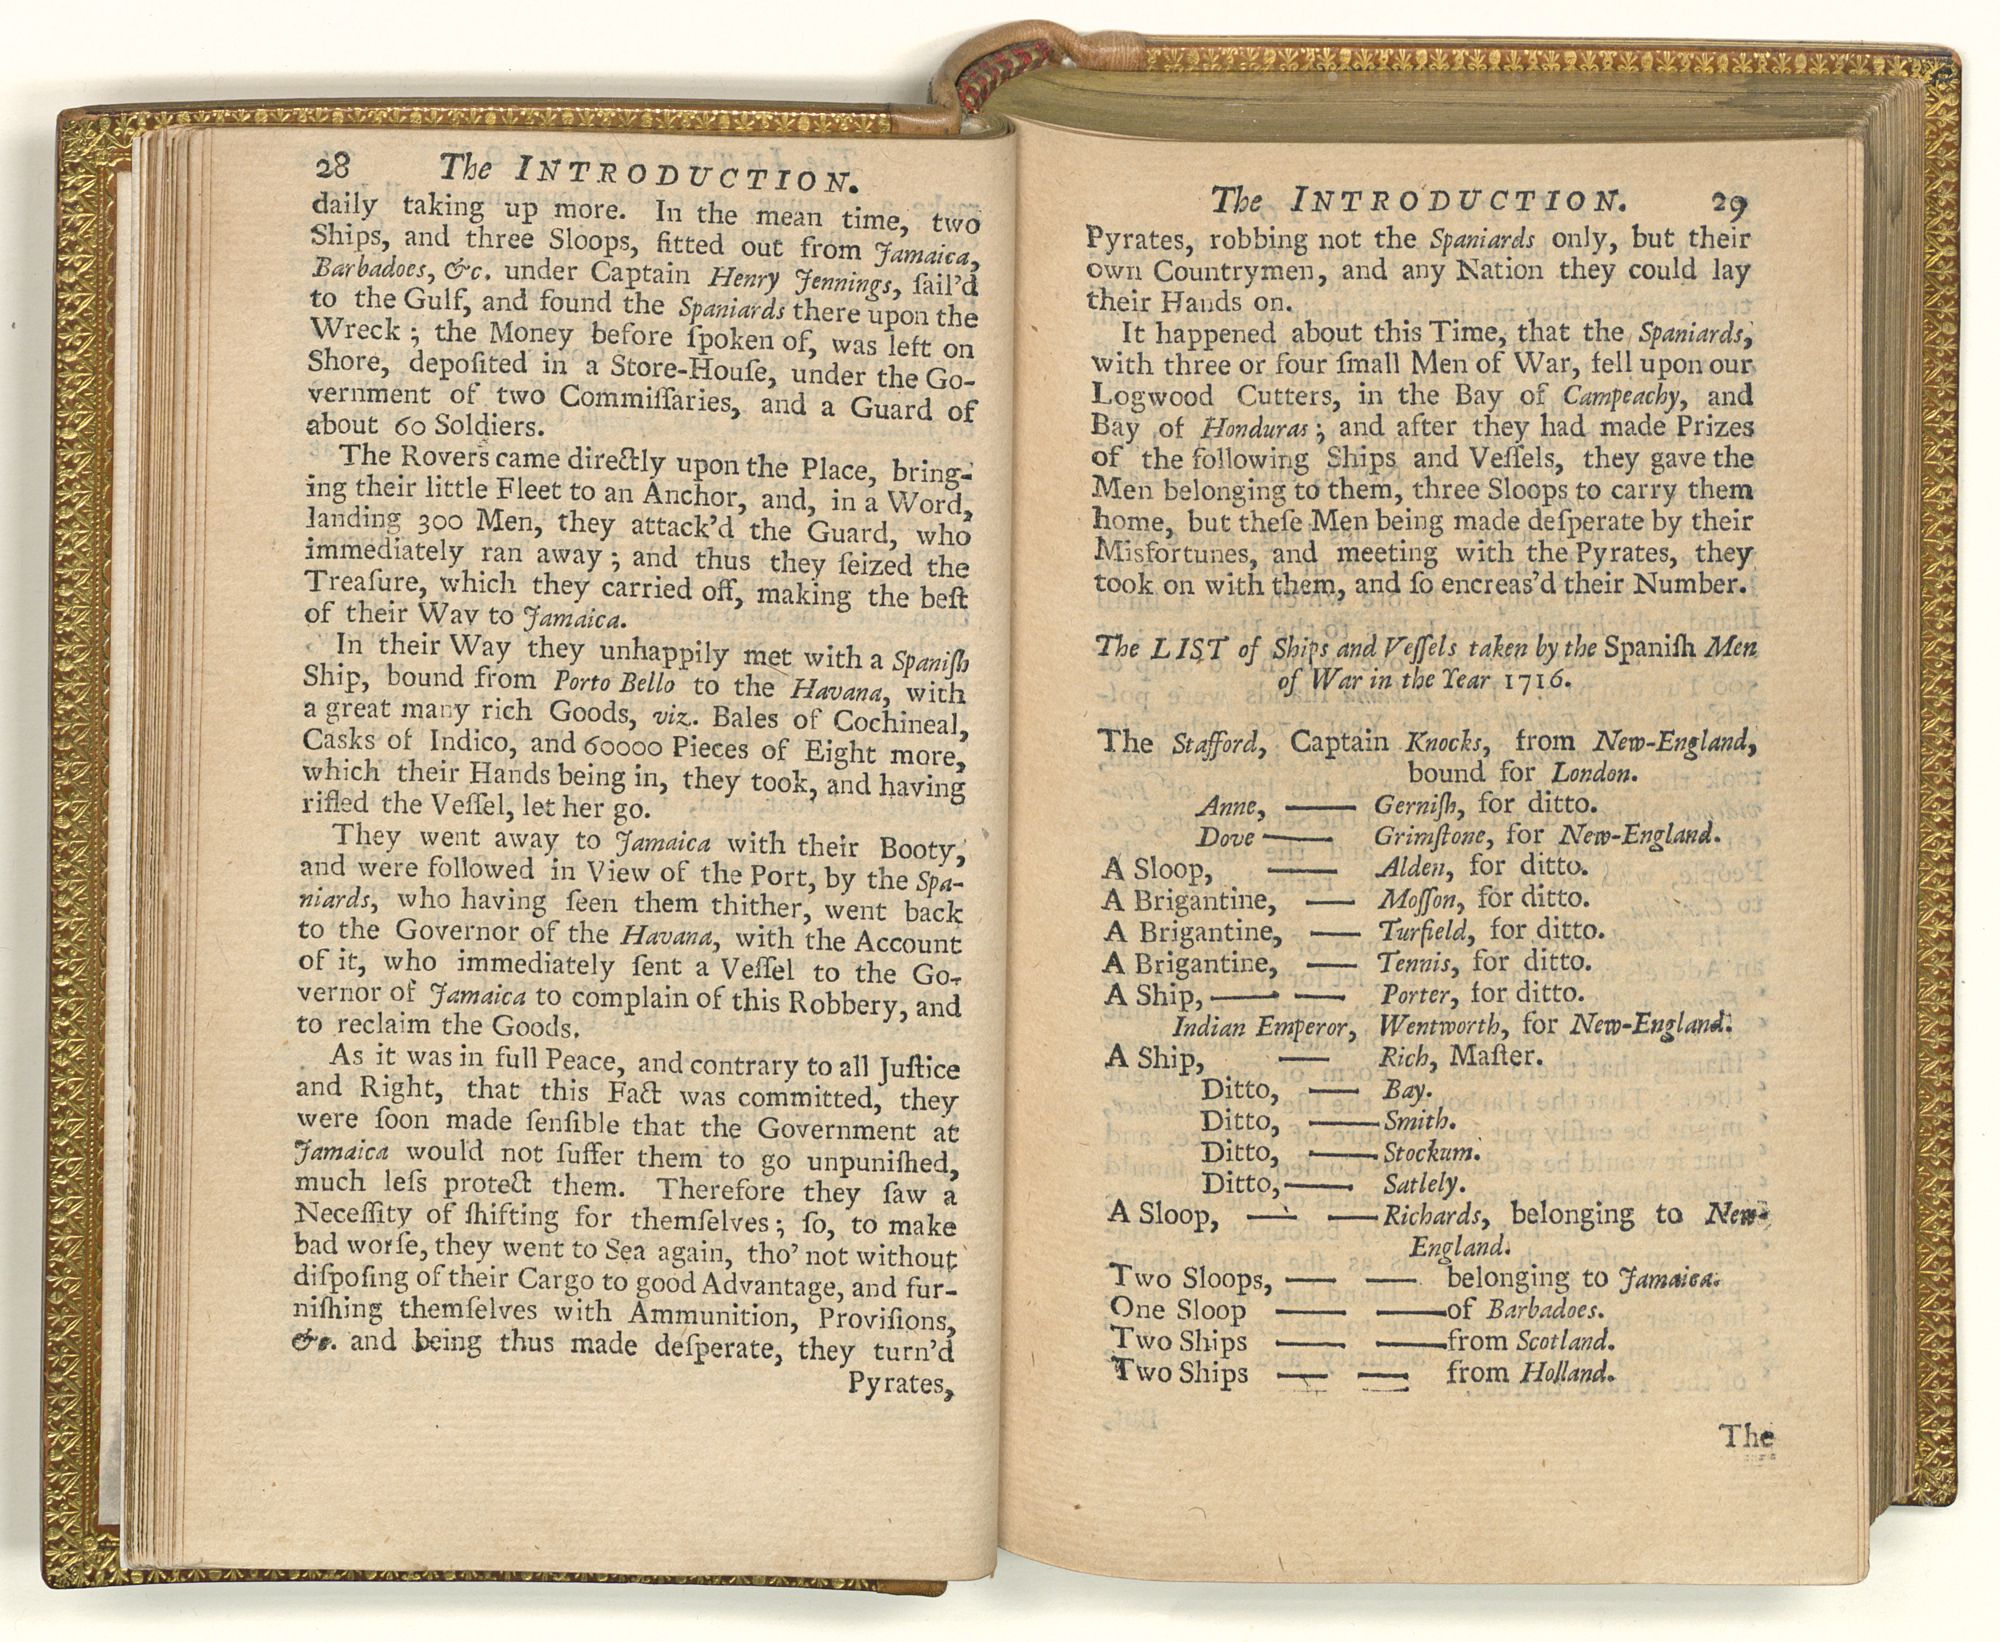 28 The INTRODUCTION.
daily taking up more. In the mean time, two
Ships, and three Sloops, fitted out from Jamaica,
Barbadoes, &c. under Captain Henry Jennings, ſail'd
to the Gulf, and found the Spaniards there upon the
Wreck; the Money before ſpoken of, was left on
Shore, depoſited in a Store-Houſe, under the Go-
vernment of two Commiſſaries, and a Guard of
about 60 Soldiers.
The Rovers came directly upon the Place, bring-
ing their little Fleet to an Anchor, and, in a Word,
landing 300 Men, they attack'd the Guard, who
immediately ran away; and thus they ſeized the
Treaſure, which they carried off, making the beſt
of their Way to Jamaica.
In their Way they unhappily met with a Spaniſh
Ship, bound from Porto Bello to the Havana, with
a great many rich Goods, viz. Bales of Cochineal,
Casks of Indico, and 60000 Pieces of Eight more,
which their Hands being in, they took, and having
rifled the Veſſel, let her go.
They went away to Jamaica with their Booty,
and were followed in View of the Port, by the Spa-
niards, who having ſeen them thither, went back
to the Governor of the Havana, with the Account
of it, who immediately ſent a Veſſel to the Go-
vernor of Jamaica to complain of this Robbery, and
to reclaim the Goods.
As it was in full Peace, and contrary to all Juſtice
and Right, that this Fact was committed, they
were ſoon made ſenſible that the Government at
Jamaica would not ſuffer them to go unpuniſhed,
much leſs protect them. Therefore they ſaw a
Neceſſity of ſhifting for themſelves; ſo, to make
bad worſe, they went to Sea again, tho' not without
diſpoſing of their Cargo to good Advantage, and fur-
niſhing themſelves with Ammunition, Proviſions,
&c. and being thus made deſperate, they turn'd
Pyrates,
The INTRODUCTION. 29
Pyrates, robbing not the Spaniards only, but their
own Countrymen, and any Nation they could lay
their Hands on.
It happened about this Time, that the Spaniards,
with three or four ſmall Men of War, fell upon our
Logwood Cutters, in the Bay of Campeachy, and
Bay of Honduras; and after they had made Prizes
of the following Ships and Veſſels, they gave the
Men belonging to them, three Sloops to carry them
home, but theſe Men being made deſperate by their
Misfortunes, and meeting with the Pyrates, they
took on with them, and ſo encreas'd their Number.
The LIST of Ships and Veſſels taken by the Spaniſh Men
of War in the Year 1716.
The Stafford, Captain Knocks, from New-England,
bound for London.
Anne, — Gerniſh, for ditto.
Dove — Grimſtone, for New-England.
A Sloop, — Alden, for ditto.
A Brigantine, — Moſſon, for ditto.
A Brigantine, — Turfield, for ditto.
A Brigantine, — Tennis, for ditto.
A Ship, — — Porter, for ditto.
Indian Emperor, Wentworth, for New-England.
A Ship, — Rich, Maſter.
Ditto, — Bay.
Ditto, — Smith.
Ditto, — Stockum.
Ditto, — Satlely.
A Sloop, — — Richards, belonging to New-
England.
Two Sloops, — — belonging to Jamaica.
One Sloop — — of Barbadoes.
Two Ships — — from Scotland.
Two Ships — — from Holland.
The